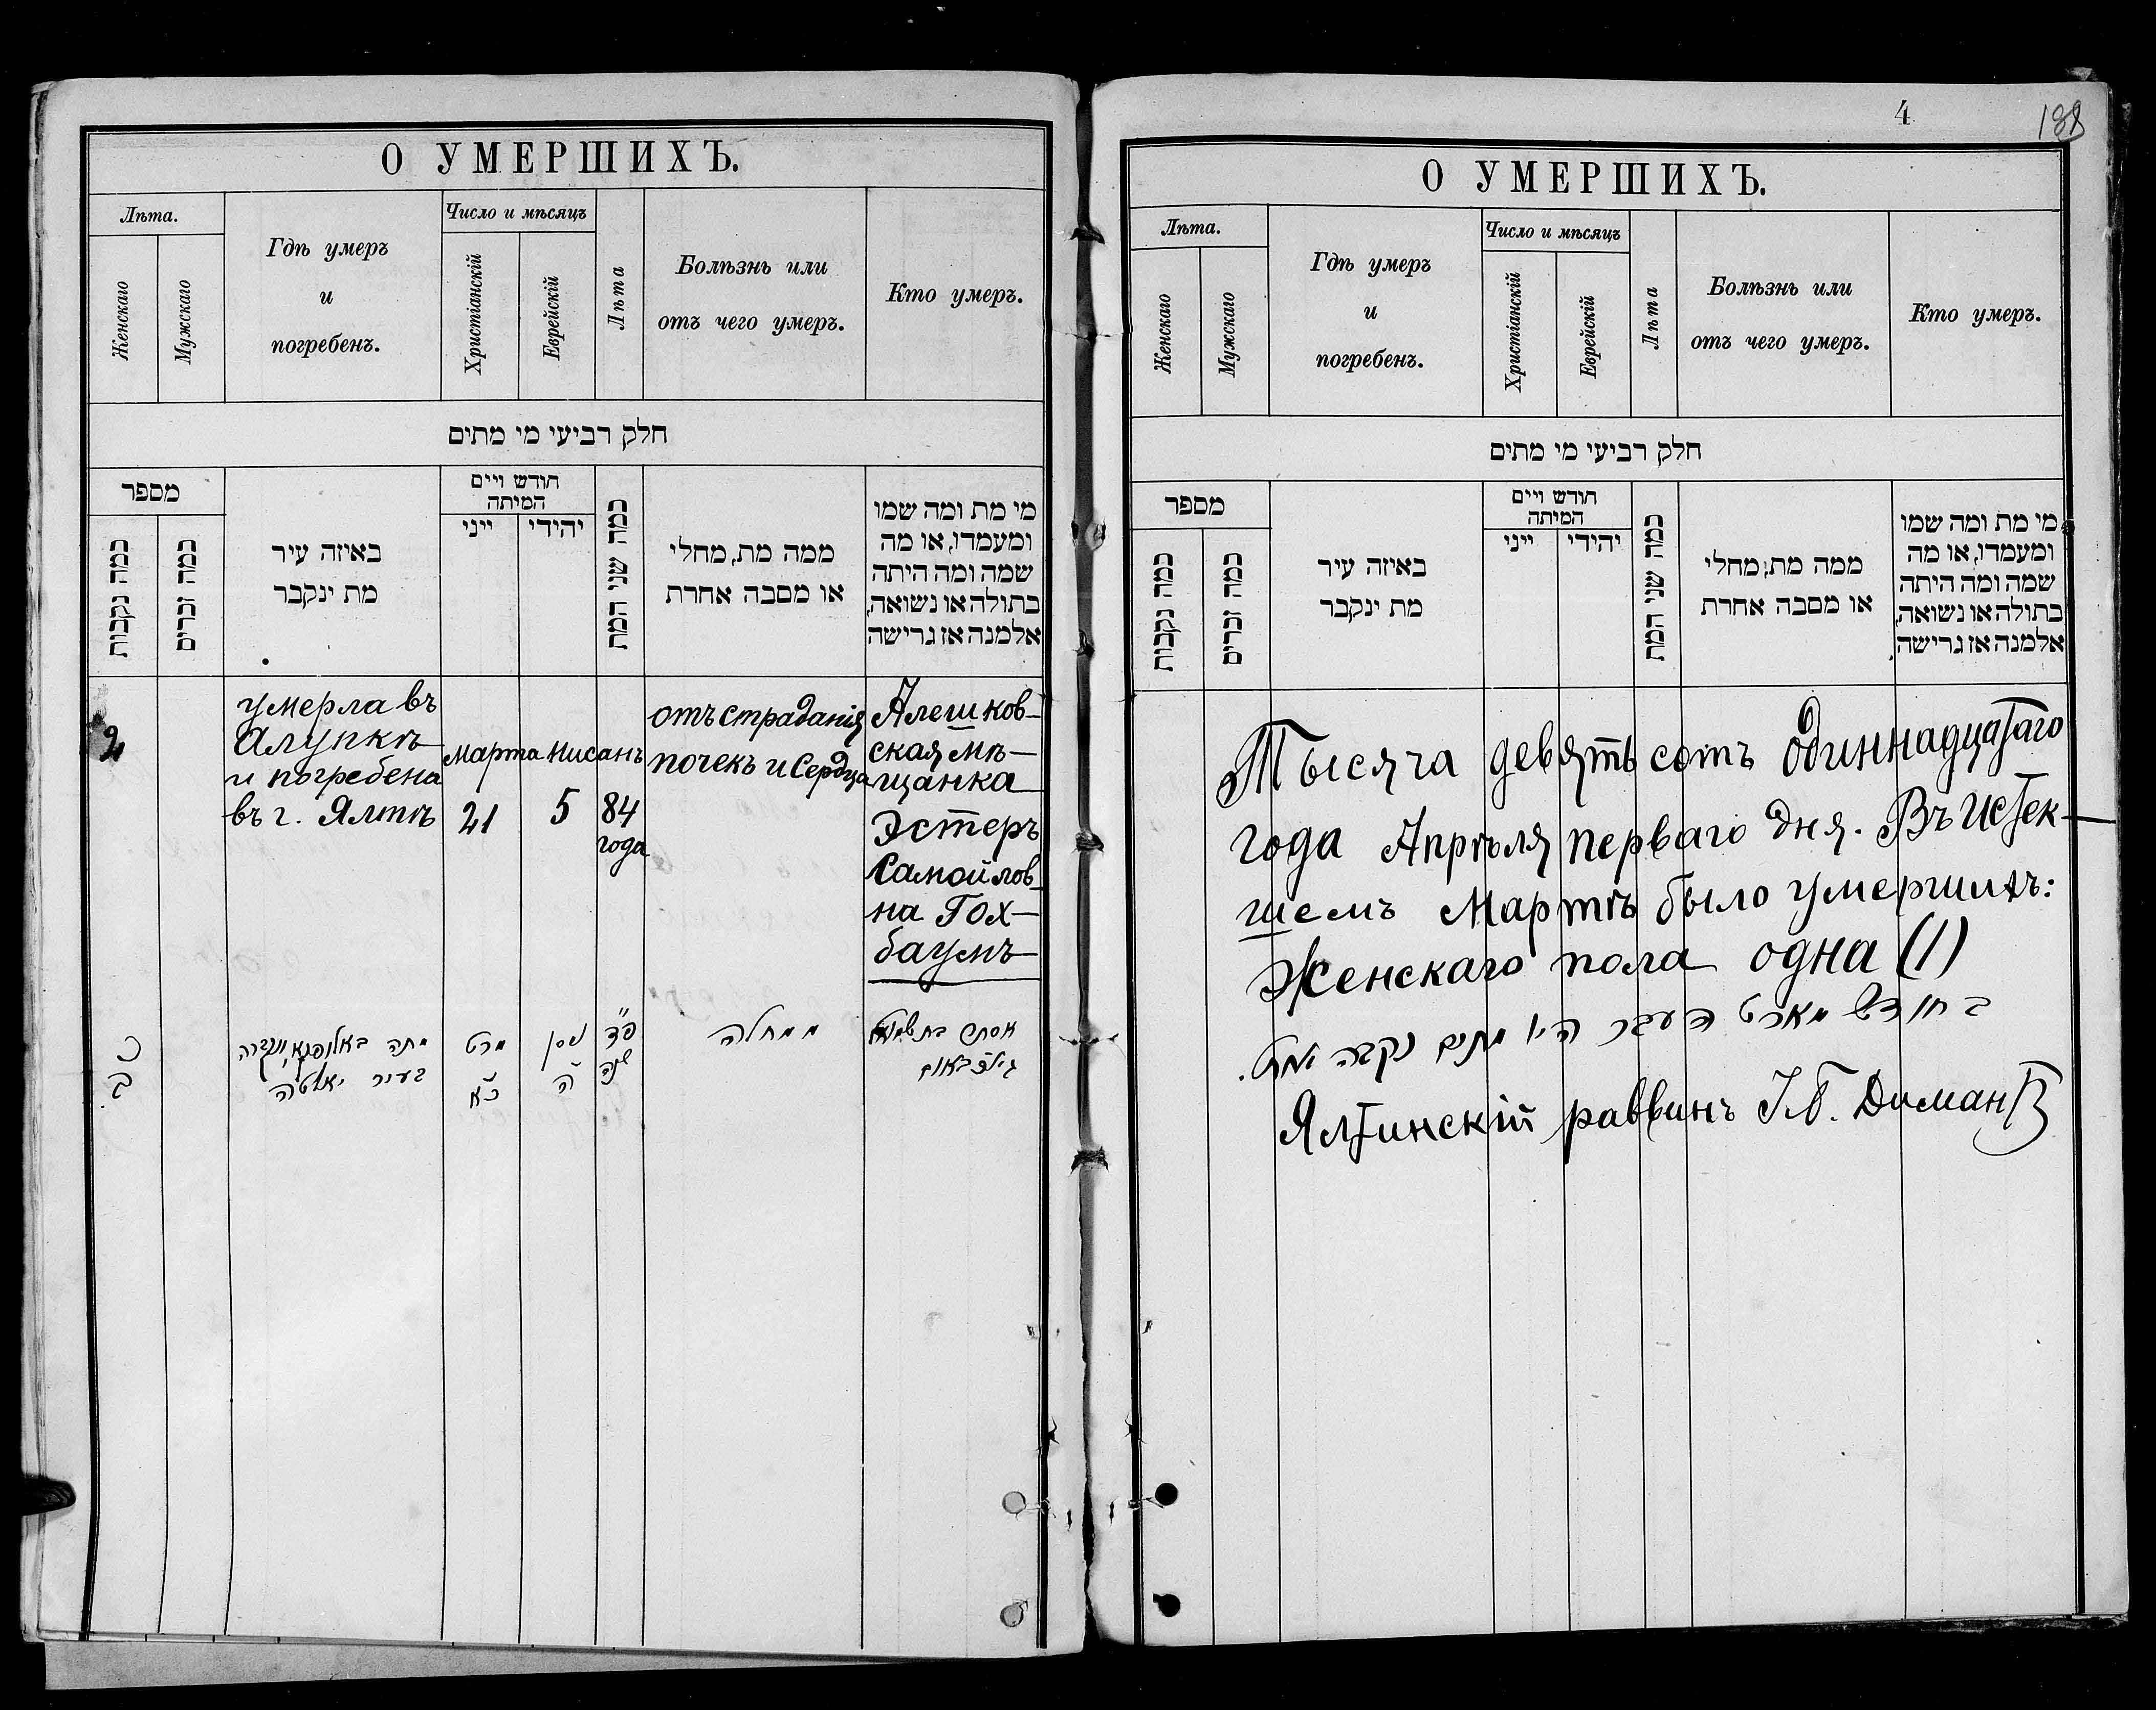 О УМЕРШИХЪ.
Лѣта.
Женскаго
Мужскаго
Гдѣ умеръ
и
погребенъ.
Число и мѣсяцъ
Христіанскій
Еврейскій
Лѣта
Болѣзнь или
отъ чего умеръ.
Кто умеръ.
חלק רביעי מי מתים
מספר
כמה נקבות
כמה זכרים
באיזה עיר
מת ינקבר
חודש ויים
המיתה
ייני
יהידי
כמה שני המת
ממה מת, מחלי
או מסבה אחרת
מי מת ומה שמו
ומעמדו, או מה
שמה ומה היתה
בתולה או נשואה,
אלמנה אז גרישה
2
умерла въ
Алупкѣ
и погребена
въ г. Ялтѣ
Марта
21
Нисанъ
5
84
года
отъ страданія
почекъ и Сердца
Алешков-
ская мѣ-
щанка
Эстеръ
Самойлов-
на Гох-
баумъ
נ
ב
מתה באלופקא ונקברה
בעיר יאלטה
מרט
כ״א
ניסן
ה׳
פ״ד
שנה
ממחלה
אסתר בת שמואל
О УМЕРШИХЪ.
4
Лѣта.
Женскаго
Мужскаго
Гдѣ умеръ
и
погребенъ.
Число и мѣсяцъ
Христіанскій
Еврейскій
Лѣта
Болѣзнь или
отъ чего умеръ.
Кто умеръ.
חלק רביעי מי מתים
מספר
כמה נקבות
כמה זכרים
באיזה עיר
מת ינקבר
חודש ויים
המיתה
ייני
יהידי
כמה שני המת
ממה מת, מחלי
או מסבה אחרת
מי מת ומה שמו
ומעמדו, או מה
שמה ומה היתה
בתולה או נשואה,
אלמנה אז גרישה
Тысяча девятьсотъ одиннадцатаго
года Апрѣля перваго дня. Въ истек-
шемъ Мартѣ было умершихъ:
Женскаго пола одна (1)
בחודש מארט העבר היו מתים נקבה אחת.
Ялтинскій раввинъ І.Б. Диманъ